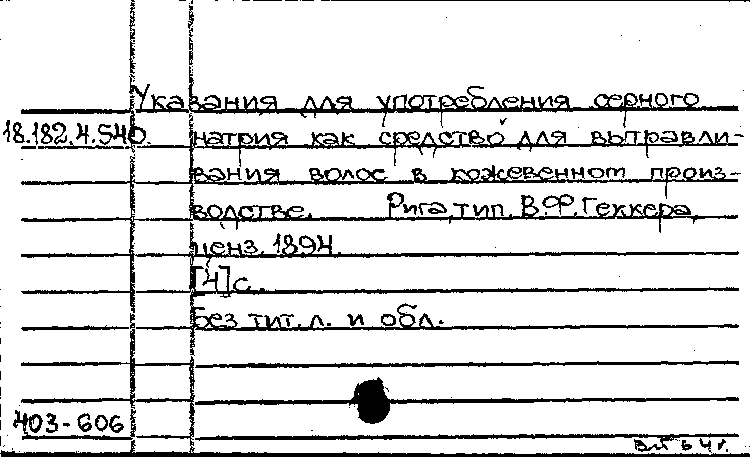 Указания для употребления серного
18.182.4.540. натрия как средство для вытравли-
вания волос в кожевенном произ-
водстве. Рига, тип. В.Ф. Геккера,
ценз. 1894.
[4] с.
Без тит. л. и обл.
403-606